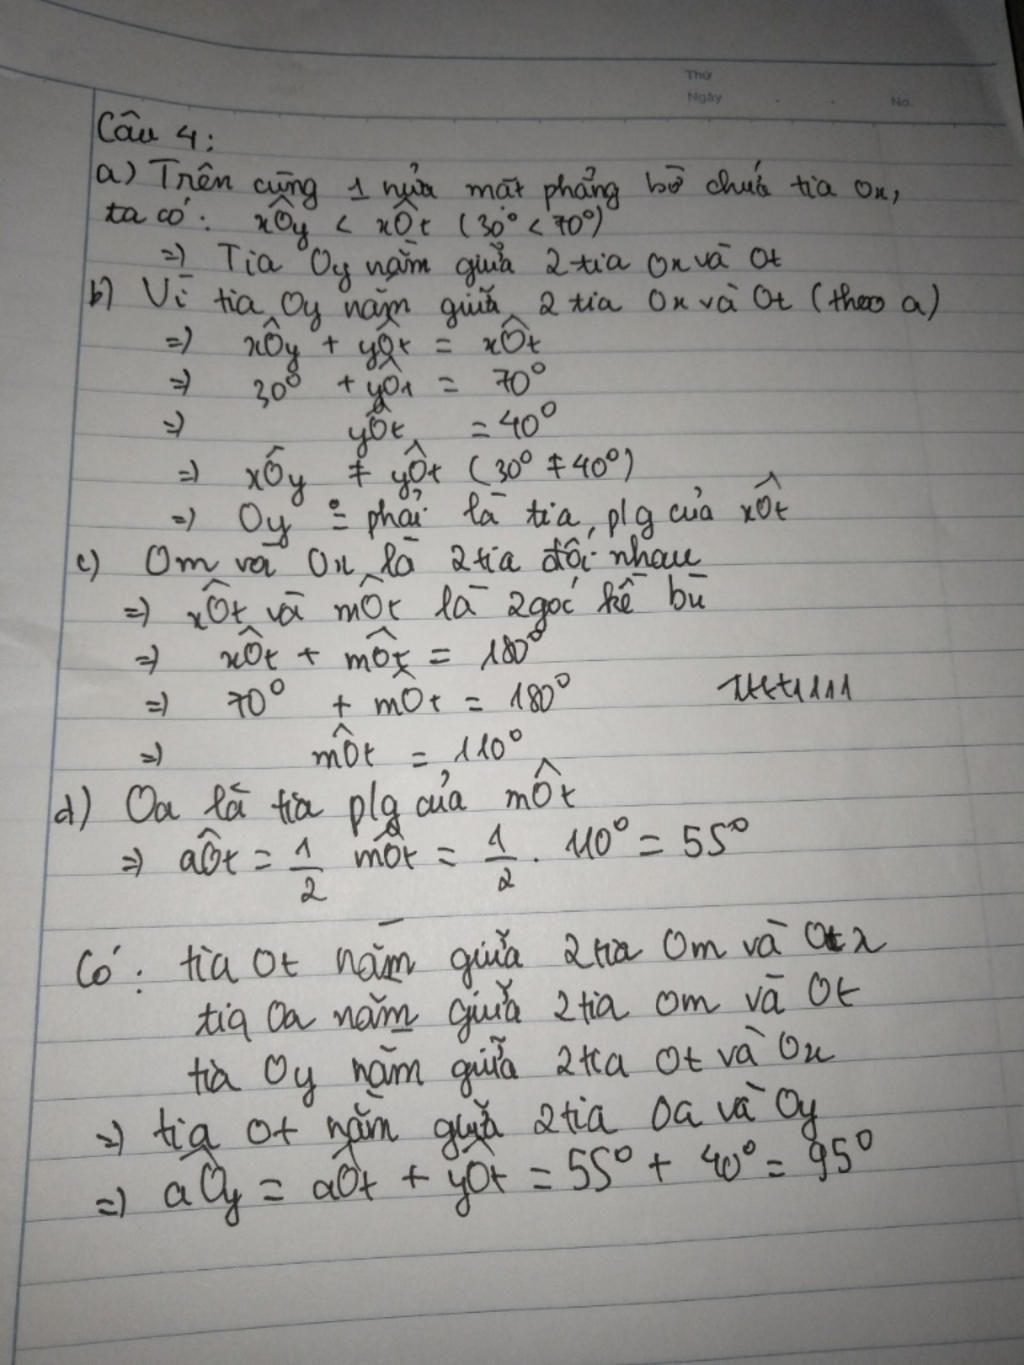 Thứ
Ngày No.
Câu 4:
a) Trên cùng 1 nửa mặt phẳng bờ chứa tia Ox,
ta có: xÔy < xÔt (30° < 70°)
=> Tia Oy nằm giữa 2 tia Ox và Ot
b) Vì tia Oy nằm giữa 2 tia Ox và Ot (theo a)
=> xÔy + yÔt = xÔt
=> 30° + yÔt = 70°
=> yÔt = 40°
=> xÔy ≠ yÔt (30° ≠ 40°)
=> Oy phải là tia plg của xÔt
c) Om và Ox là 2 tia đối nhau
=> xÔt và mÔt là 2 góc kề bù
=> xÔt + mÔt = 180°
=> 70° + mÔt = 180°
=> mÔt = 110°
d) Oa là tia plg của mÔt
=> aÔt = 1/2 mÔt = 1/2 . 110° = 55°
Có: tia Ot nằm giữa 2 tia Om và Ox
tia Oa nằm giữa 2 tia Om và Ot
tia Oy nằm giữa 2 tia Ot và Ox
=> tia Ot nằm giữa 2 tia Oa và Oy
=> aÔy = aÔt + yÔt = 55° + 40° = 95°